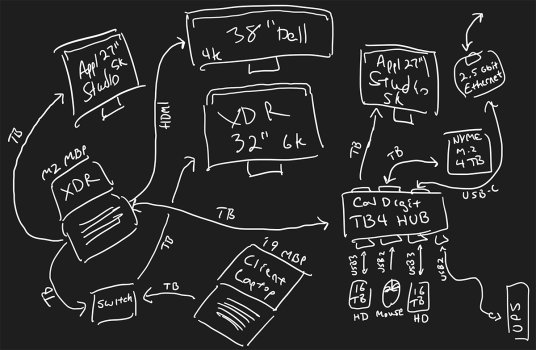 38" Dell
4k
Appl 27"
Studio
5k
HDMI
XDR
32" 6k
TB
M2 MBP
XDR
TB
TB
TB
Switch
TB
i9 MBP
Client
Laptop
TB
Appl 27"
Studio
5k
2.5 Gbit
Ethernet
TB
TB
NVME
M.2
4TB
USB-C
CalDigit
TB4 HUB
USB3
USB2
USB3
USB2
16
TB
HD
Mouse
16
TB
HD
UPS